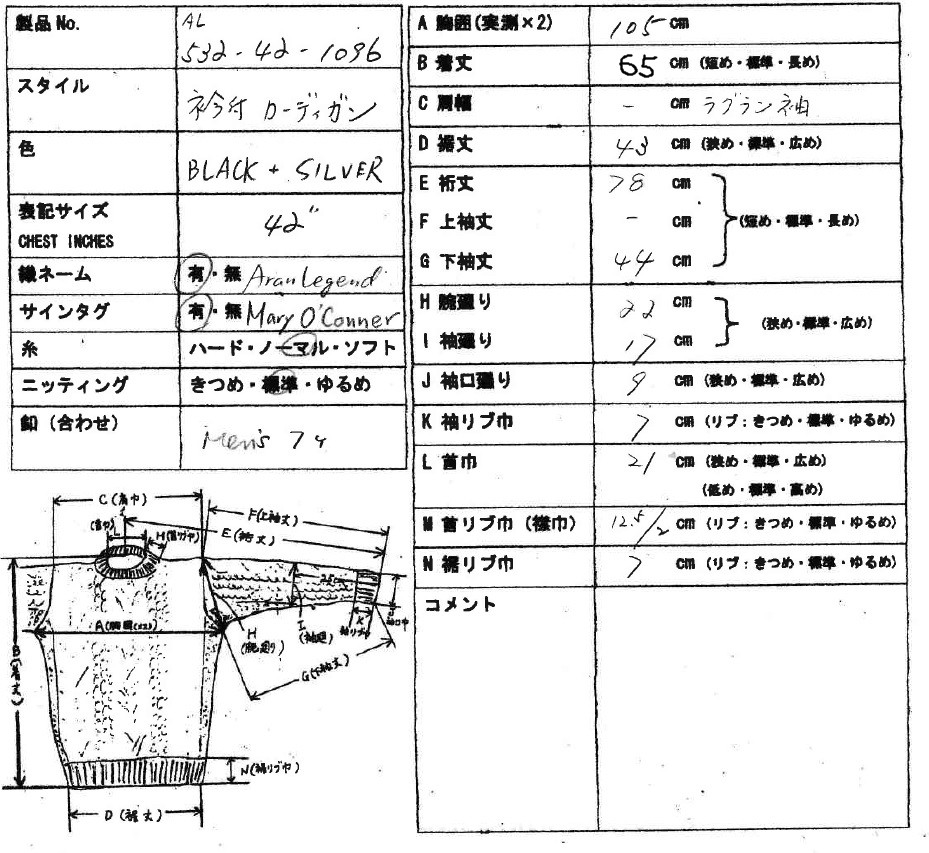 製品No.
AL
532-42-1096
スタイル
衿付 カーディガン
色
BLACK + SILVER
表記サイズ
CHEST INCHES
42"
織ネーム
有・無 Aran Legend
サインタグ
有・無 Mary O'Conner
糸
ハード・ノーマル・ソフト
ニッティング
きつめ・標準・ゆるめ
釦(合わせ)
Men's 7ヶ
A 胸囲(実測×2)
105 cm
B 着丈
65 cm (短め・標準・長め)
C 肩幅
- cm ラグラン袖
D 裾丈
43 cm (狭め・標準・広め)
E 裄丈
78 cm
F 上袖丈
- cm (短め・標準・長め)
G 下袖丈
44 cm
H 腕廻り
22 cm
(狭め・標準・広め)
I 袖廻り
17 cm
J 袖口廻り
9 cm (狭め・標準・広め)
K 袖リブ巾
7 cm (リブ:きつめ・標準・ゆるめ)
L 首巾
21 cm (狭め・標準・広め)
(低め・標準・高め)
M 首リブ巾(襟巾)
12.5/2 cm (リブ:きつめ・標準・ゆるめ)
N 裾リブ巾
7 cm (リブ:きつめ・標準・ゆるめ)
コメント
C(肩巾)
F(上袖丈)
E(裄丈)
L
A(胸囲(×2))
B(着丈)
H
(腕廻り)
I
(袖廻)
K
袖リブ巾
袖口巾
G(下袖丈)
N(裾リブ巾)
D(裾丈)